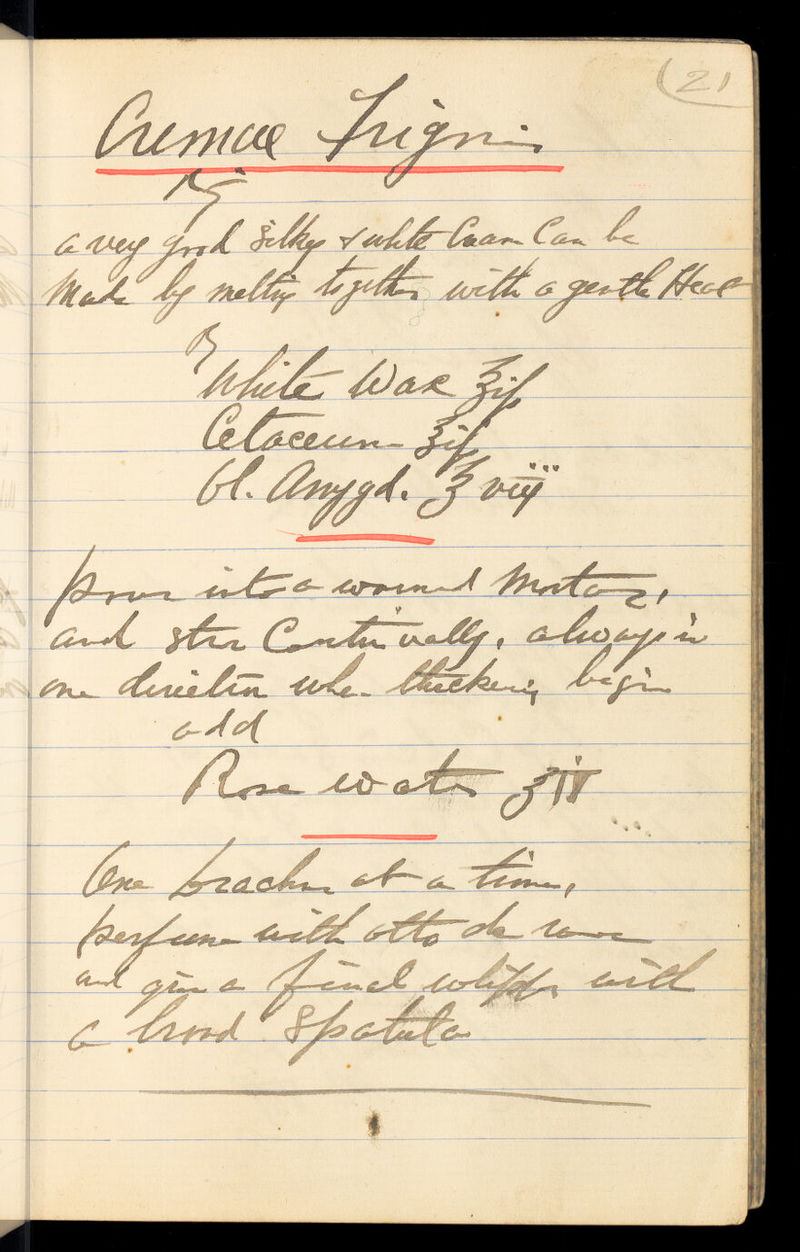 21
Cremae Frigoris
a very good silky & white Cream Can be
Made by melting together with a gentle Heat
℞
White Wax ℥iſs
Cetaceum ℥iſs
Ol. Amygd. ℥viij
pour into a warmed Mortar,
and stir Continually, always in
one direction when thickening begins
add
Rose water ℥iv
One drachm at a time,
perfume with otto de rose
and give a final whipp with
a broad Spatula